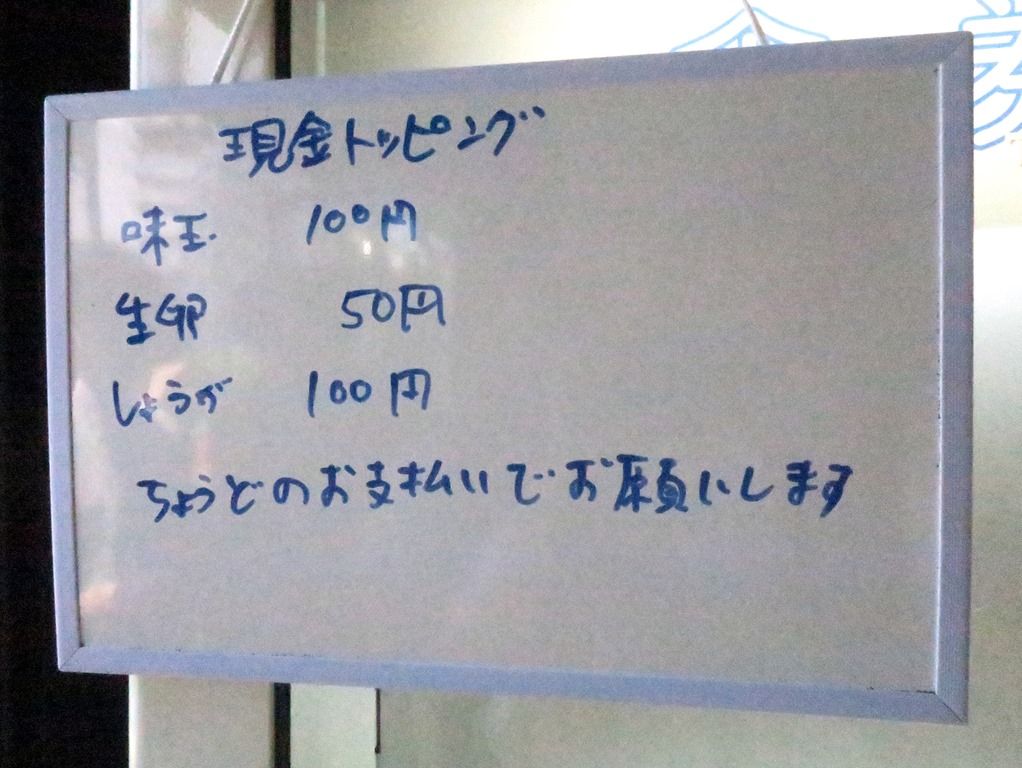 現金トッピング
味玉 100円
生卵 50円
しょうが 100円
ちょうどのお支払いでお願いします